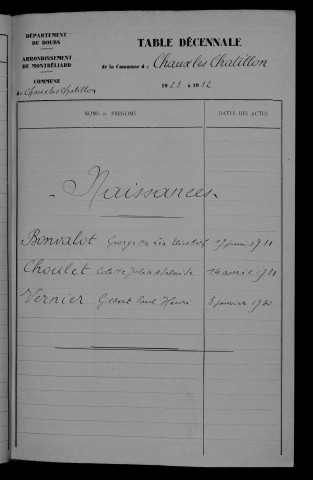 DÉPARTEMENT
DU DOUBS
ARRONDISSEMENT
DE MONTBÉLIARD
COMMUNE
de Chaux les Chatillon
TABLE DÉCENNALE
de la Commune de Chaux les Chatillon
1923 à 1932
NOMS et PRÉNOMS
DATES DES ACTES
- Naissances -
Bonvalot Georgette Léa Elisabeth 17 juin 1931
Choulet Colette Julia Adelaïde 14 avril 1931
Vernier Gérard Paul Henri 3 janvier 1930